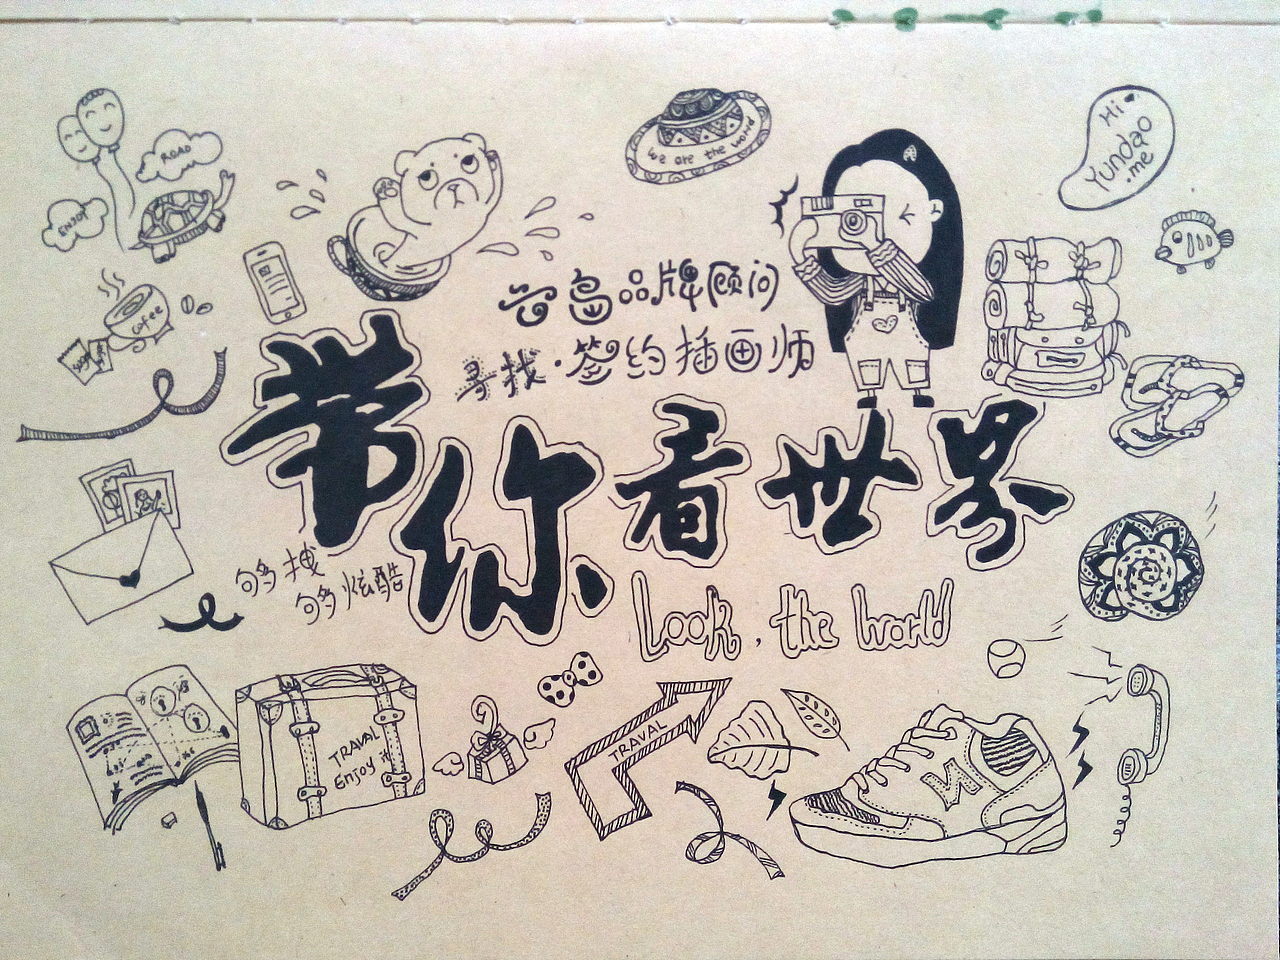 Hi
Yundao
.me
ROAD
ENJOY
we are the world
Cofee
云岛品牌顾问
寻找·签约插画师
带你看世界
够拽
够炫酷
Look, the world
TRAVAL
Enjoy it
TRAVAL
N